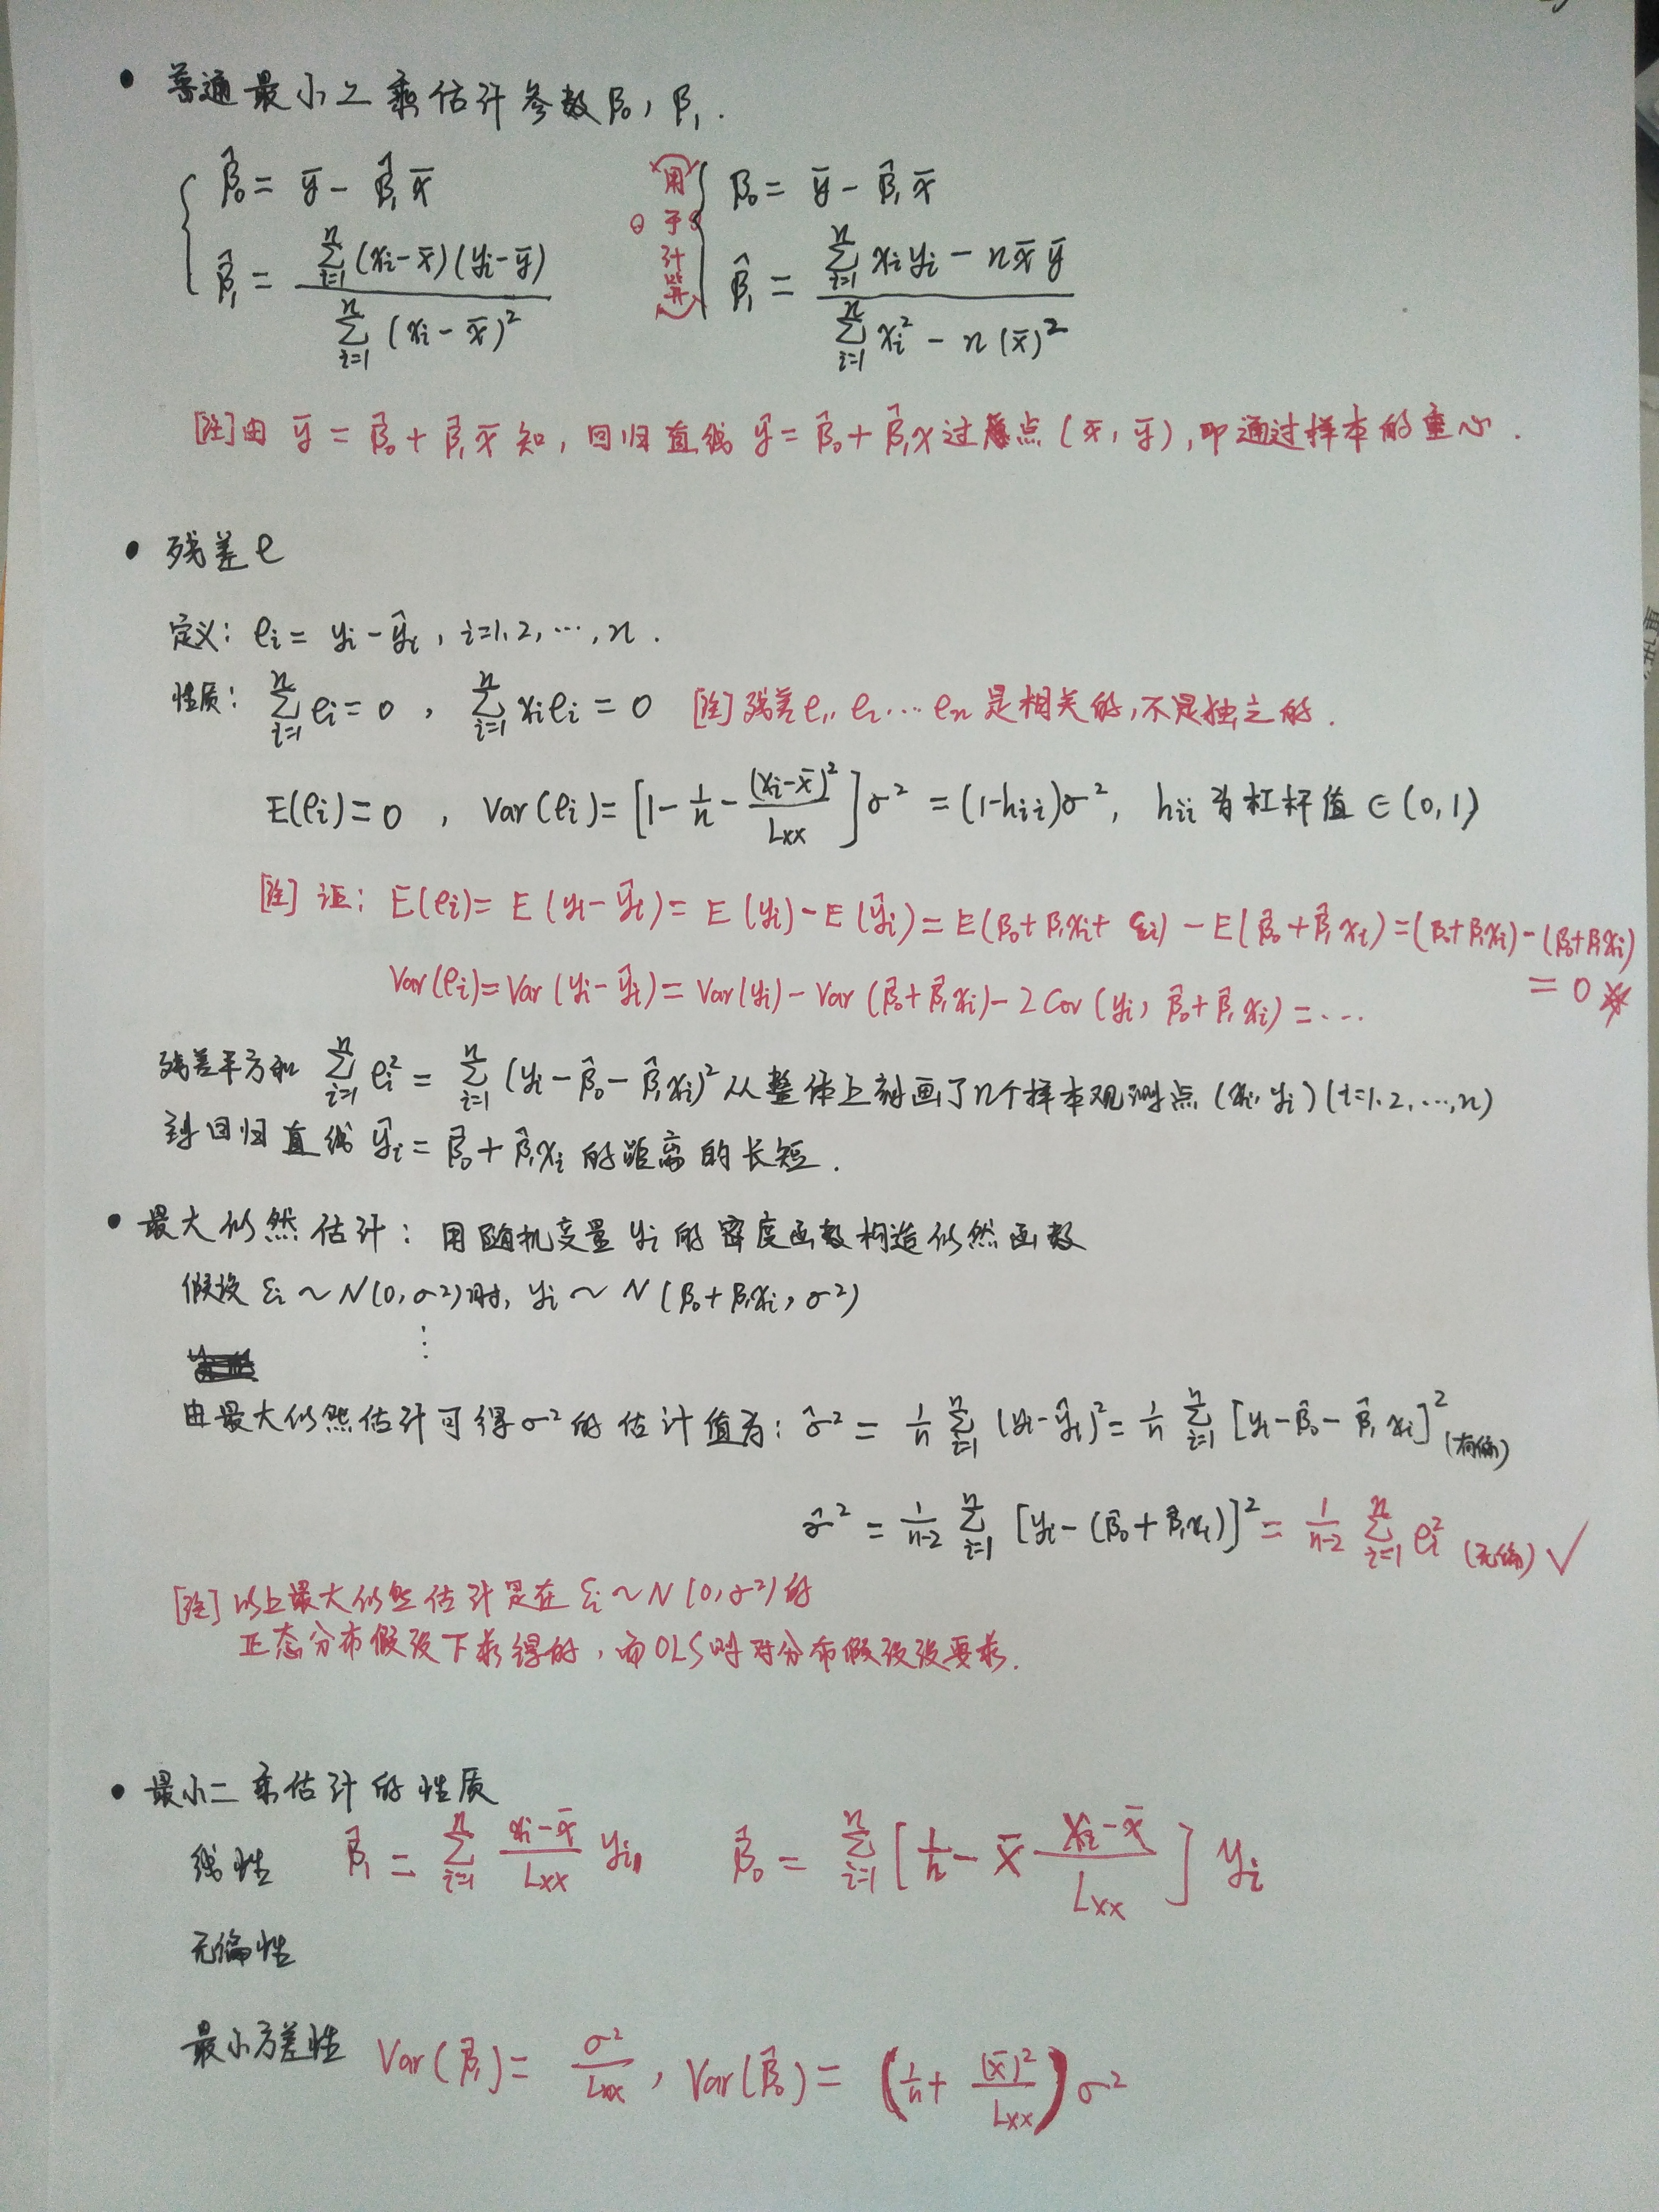 • 普通最小二乘估计参数β₀, β₁.
{ β̂₀ = ȳ - β̂₁x̄
β̂₁ = ∑ᵢ₌₁ⁿ(xᵢ-x̄)(yᵢ-ȳ) / ∑ᵢ₌₁ⁿ(xᵢ-x̄)²
(用于计算) { β̂₀ = ȳ - β̂₁x̄
β̂₁ = (∑ᵢ₌₁ⁿ xᵢyᵢ - nx̄ȳ) / (∑ᵢ₌₁ⁿ xᵢ² - n(x̄)²)
[注]由 ȳ = β̂₀ + β̂₁x̄ 知, 回归直线 ŷ = β̂₀ + β̂₁x 过点(x̄, ȳ), 即通过样本的重心.
• 残差e
定义: eᵢ = yᵢ - ŷᵢ, i=1,2,…,n.
性质: ∑ᵢ₌₁ⁿ eᵢ = 0, ∑ᵢ₌₁ⁿ xᵢeᵢ = 0 [注] 残差e₁, e₂…eₙ 是相关的,不是独立的.
E(eᵢ)=0, Var(eᵢ)=[1 - 1/n - (xᵢ-x̄)²/Lxx]σ² = (1-hᵢᵢ)σ², hᵢᵢ为杠杆值∈(0,1)
[注] 证: E(eᵢ)= E(yᵢ-ŷᵢ)= E(yᵢ)-E(ŷᵢ)= E(β₀+β₁xᵢ+εᵢ) - E(β̂₀+β̂₁xᵢ) =(β₀+β₁xᵢ)-(β₀+β₁xᵢ)
= 0
Var(eᵢ)=Var(yᵢ-ŷᵢ)= Var(yᵢ)-Var(β̂₀+β̂₁xᵢ)-2Cov(yᵢ, β̂₀+β̂₁xᵢ) = …
残差平方和 ∑ᵢ₌₁ⁿ eᵢ² = ∑ᵢ₌₁ⁿ (yᵢ-β̂₀-β̂₁xᵢ)² 从整体上刻画了n个样本观测点(xᵢ, yᵢ)(i=1,2,…,n)
到回归直线 ŷᵢ = β̂₀+β̂₁xᵢ 的距离的长短.
• 最大似然估计: 用随机变量yᵢ的密度函数构造似然函数
假设 εᵢ ~ N(0,σ²)时, yᵢ ~ N(β₀+β₁xᵢ, σ²)
⋮
由最大似然估计可得σ²的估计值为: σ̂² = 1/n ∑ᵢ₌₁ⁿ (yᵢ-ŷᵢ)² = 1/n ∑ᵢ₌₁ⁿ [yᵢ-β̂₀-β̂₁xᵢ]² (有偏)
σ̂² = 1/(n-2) ∑ᵢ₌₁ⁿ [yᵢ-(β̂₀+β̂₁xᵢ)]² = 1/(n-2) ∑ᵢ₌₁ⁿ eᵢ² (无偏) √
[注] 以上最大似然估计是在 εᵢ~N(0,σ²)的
正态分布假设下求得的, 而OLS则对分布假设没要求.
• 最小二乘估计的性质
线性 β̂₁ = ∑ᵢ₌₁ⁿ (xᵢ-x̄)/Lxx yᵢ, β̂₀ = ∑ᵢ₌₁ⁿ [1/n - x̄ (xᵢ-x̄)/Lxx] yᵢ
无偏性
最小方差性 Var(β̂₁)= σ²/Lxx, Var(β̂₀)= (1/n + (x̄)²/Lxx)σ²